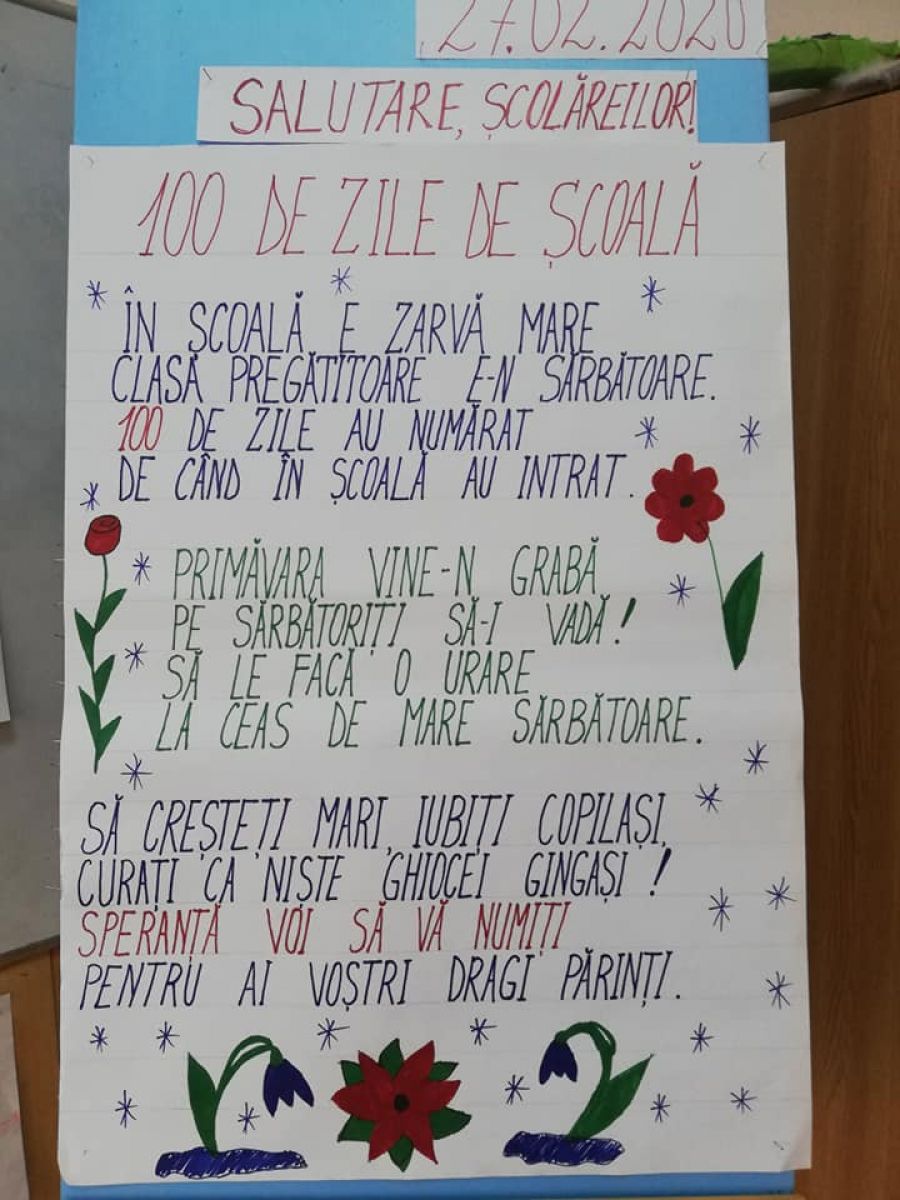 27.02.2020
SALUTARE, ȘCOLĂREILOR!
100 DE ZILE DE ȘCOALĂ
ÎN ȘCOALĂ E ZARVĂ MARE
CLASA PREGĂTITOARE E-N SĂRBĂTOARE.
100 DE ZILE AU NUMĂRAT
DE CÂND ÎN ȘCOALĂ AU INTRAT.
PRIMĂVARA VINE-N GRABĂ
PE SĂRBĂTORIȚI SĂ-I VADĂ!
SĂ LE FACĂ O URARE
LA CEAS DE MARE SĂRBĂTOARE.
SĂ CREȘTEȚI MARI, IUBIȚI COPILAȘI,
CURAȚI CA NIȘTE GHIOCEI GINGAȘI!
SPERANȚĂ VOI SĂ VĂ NUMIȚI
PENTRU AI VOȘTRI DRAGI PĂRINȚI.